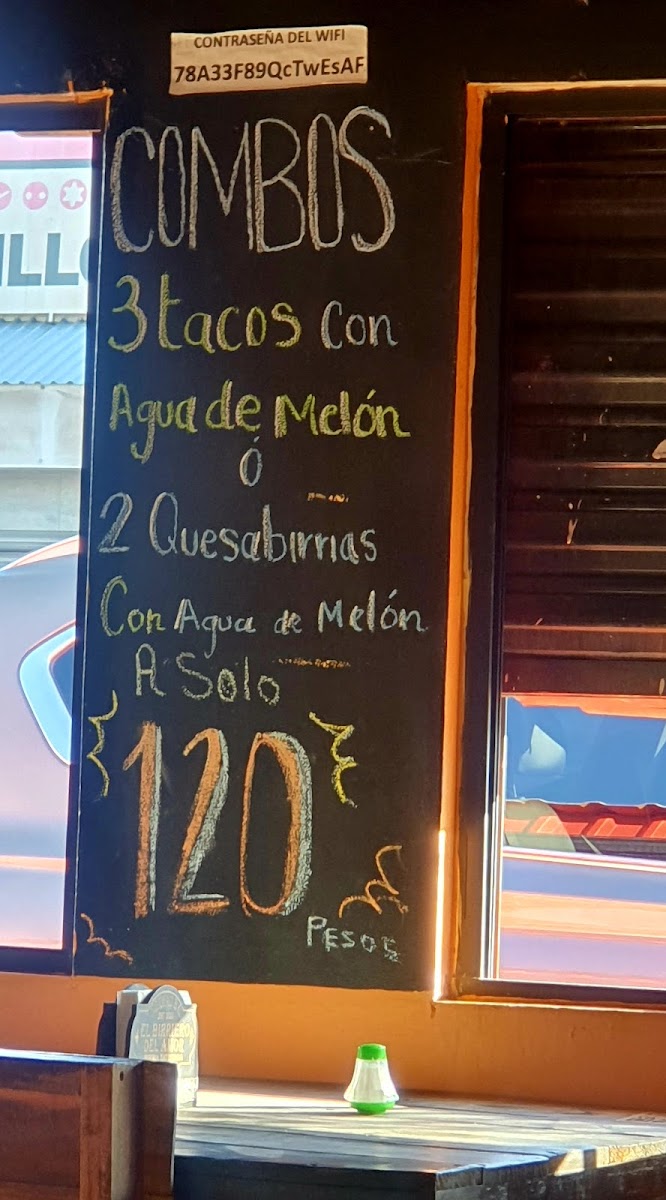 CONTRASEÑA DEL WIFI
78A33F89QcTwEsAF
COMBOS
3 tacos Con
Agua de Melón
Ó
2 Quesabirrias
Con Agua de Melón
A Solo
120
PESOS
EL BIRRIERO
DEL AMOR